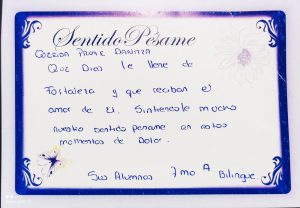 Sentido Pésame
Querida Profe Danitza
Que Dios le llene de
Fortaleza y que reciban el
amor de El. Sintiendole mucho
nuestro sentido pesame en estos
momentos de Dolor.
Sus Alumnos 7mo A Bilingue